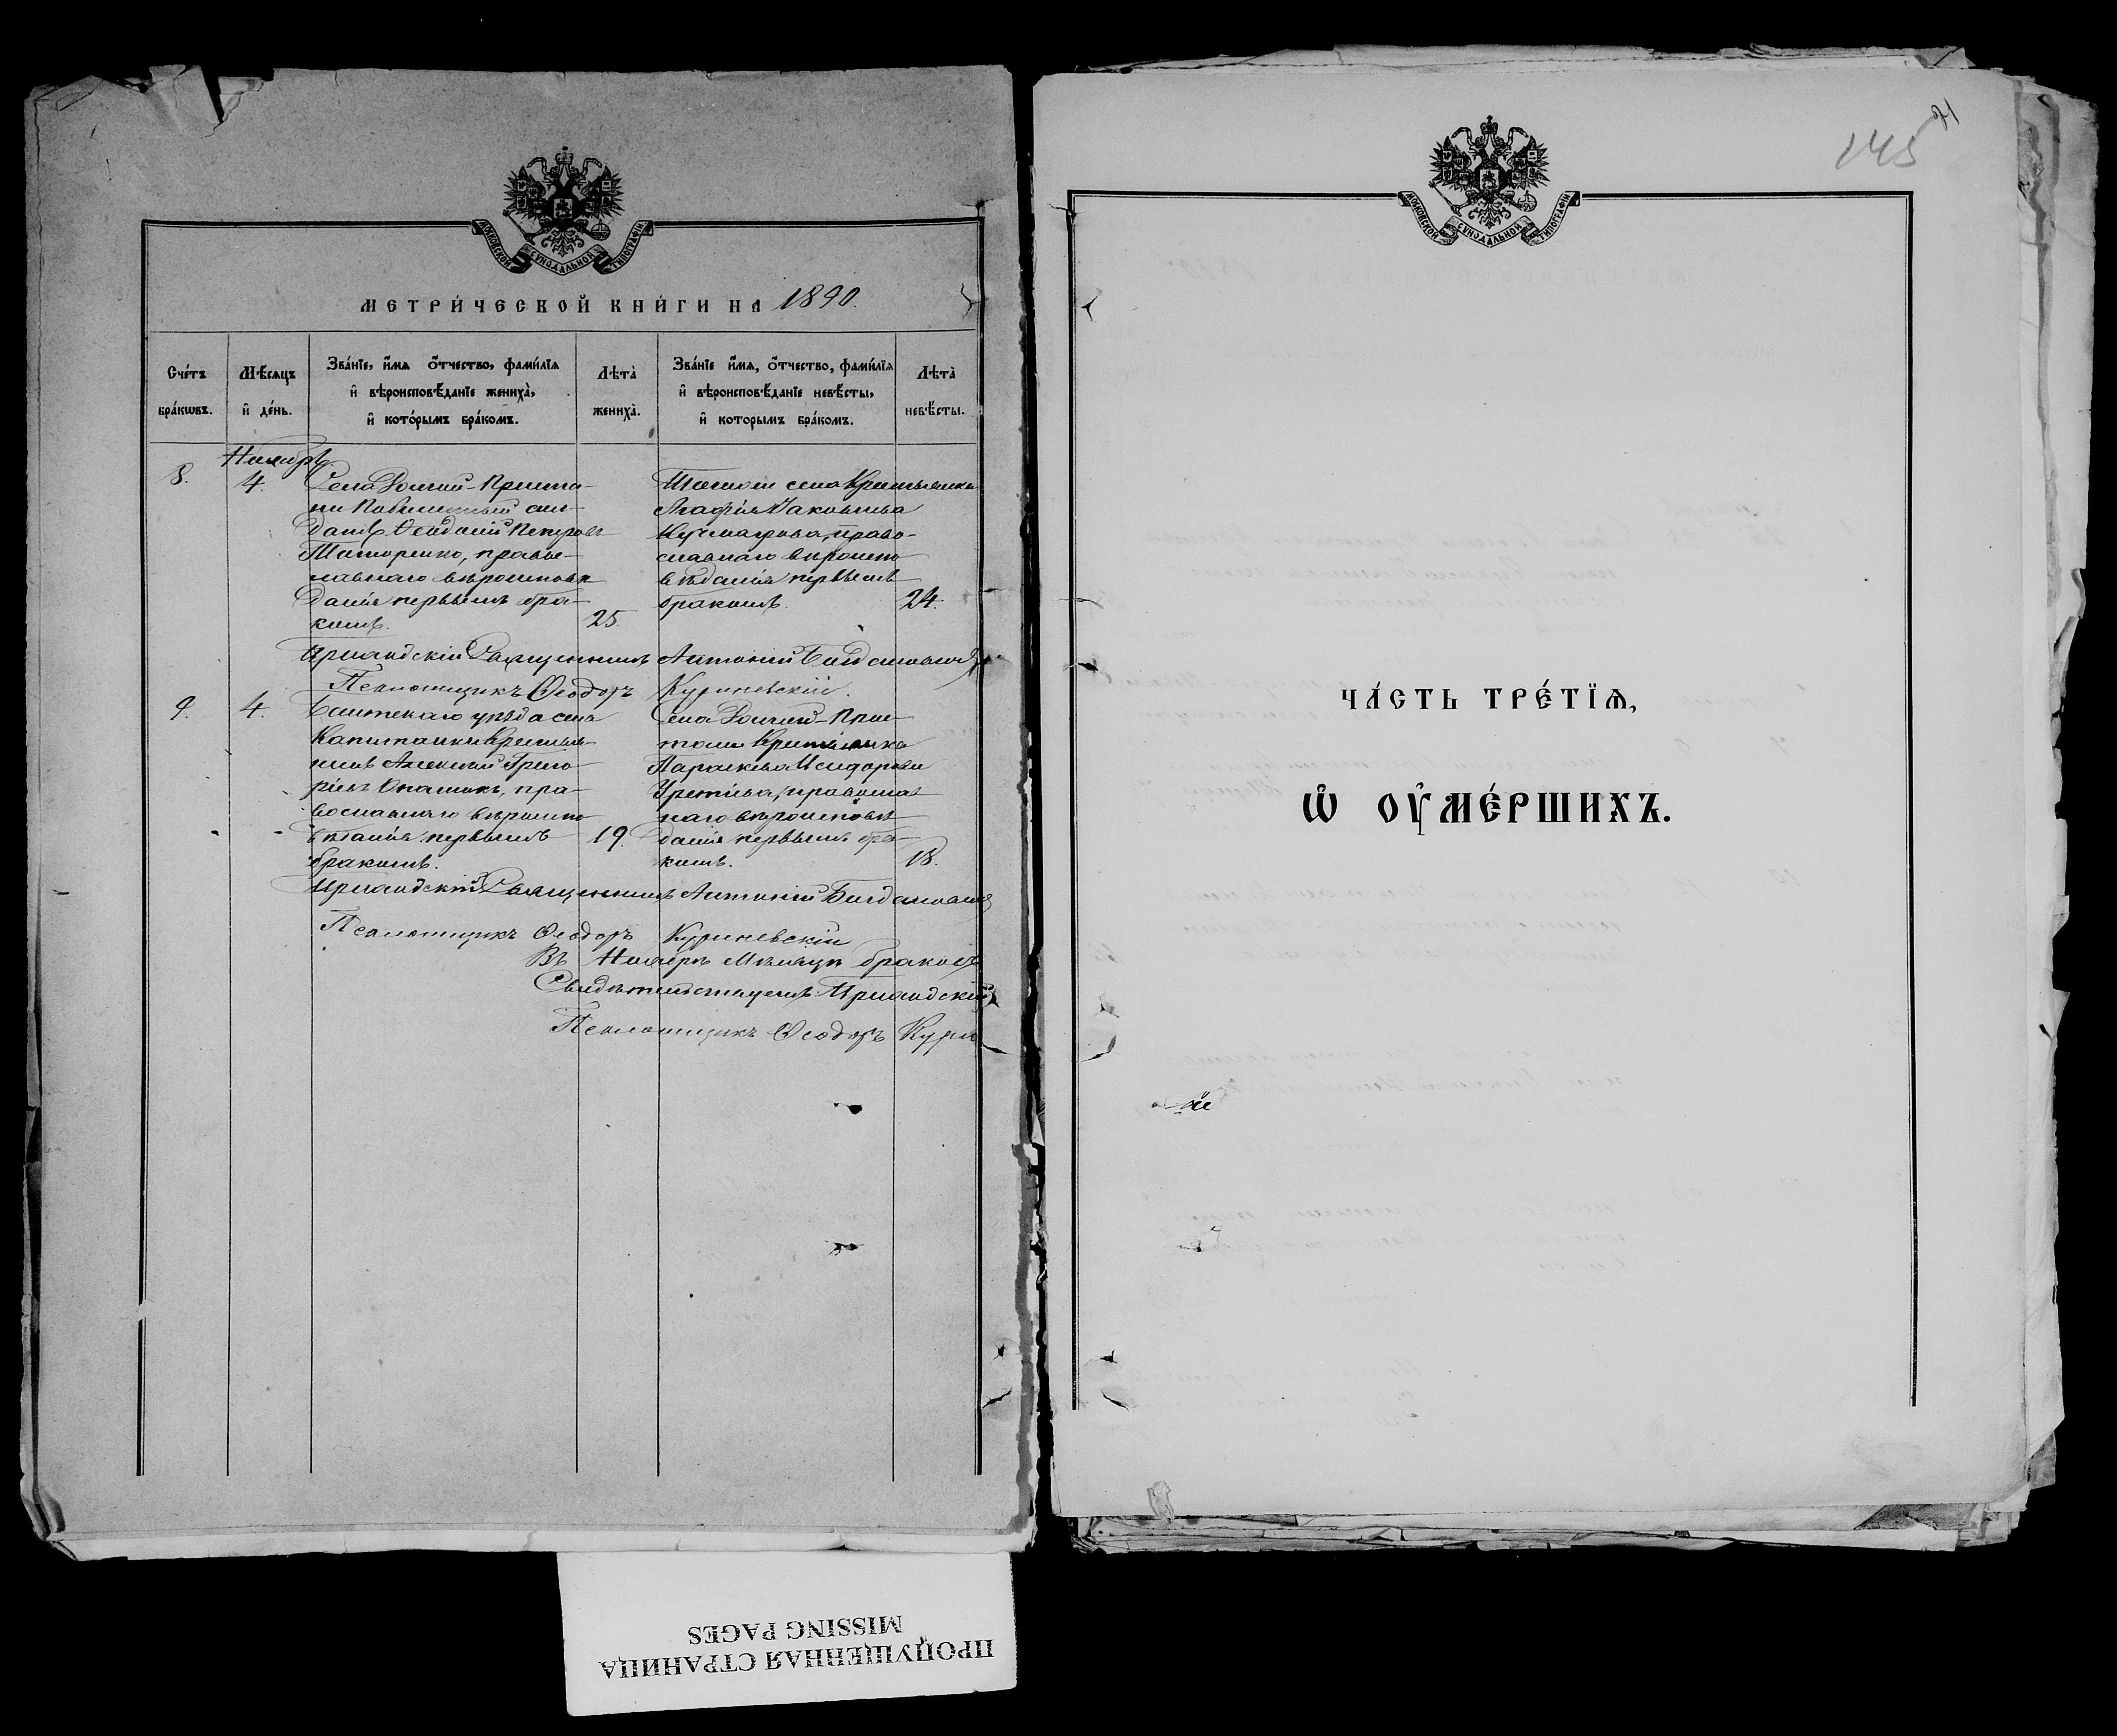 МОСКОВСКОЙ СѴНОДАЛЬНОЙ ТИПОГРАФІИ
МЕТРИ́ЧЕСКОЙ КНИ́ГИ НА 1890.
Сче́тъ бра́кѡвъ.
Мѣ́сяцъ и҆ де́нь.
Зва́нїе, и҆́мя ѻ҆́тчество, фами́лїя
и҆ вѣроисповѣ́данїе жениха̀,
и҆ кото́рымъ бра́комъ.
Лѣта̀ жениха̀.
Зва́нїе и҆́мя, ѻ҆́тчество, фами́лїя
и҆ вѣроисповѣ́данїе невѣ́сты,
и҆ которымъ бра́комъ.
Лѣта̀ невѣ́сты.
Ноябрь
8.
4.
Села Долгой-Приста-
ни
датъ Феодосій Петровъ
правос-
лавнаго вѣроисповѣ
данія первымъ бра-
комъ.
25.
Тогоже села Крестьянка
Агафія Яковлева
право-
славнаго вѣроиспо
вѣданія первымъ
бракомъ.
24.
Приходскій Священникъ Антоній Богдановичъ
Псаломщикъ Ѳеодоръ Куриневскій.
9.
4.
Балтскаго уѣзда села
Капитанки Крестья-
нинъ Алексѣй Григо-
ріевъ пра-
вославнаго вѣроиспо
вѣданія первымъ
бракомъ.
19.
Села Долгой-Прис-
тани Крестьянка
Параскева Исидорова
православ
наго вѣроисповѣ
данія первымъ бра-
комъ.
18.
Приходскій Священникъ Антоній Богдановичъ
Псаломщикъ Ѳеодоръ Куриневскій
Въ Ноябрѣ Мѣсяцѣ браковъ
Свидѣтельствуемъ: Приходскій
Псаломщикъ Ѳеодоръ Кури
145
МОСКОВСКОЙ СѴНОДАЛЬНОЙ ТИПОГРАФІИ
ЧА́СТЬ ТРЕ́ТЇѦ,
Ѡ҆ ОУ҆МЕ́РШИХЪ.
ПРОПУЩЕННАЯ СТРАНИЦА
MISSING PAGES